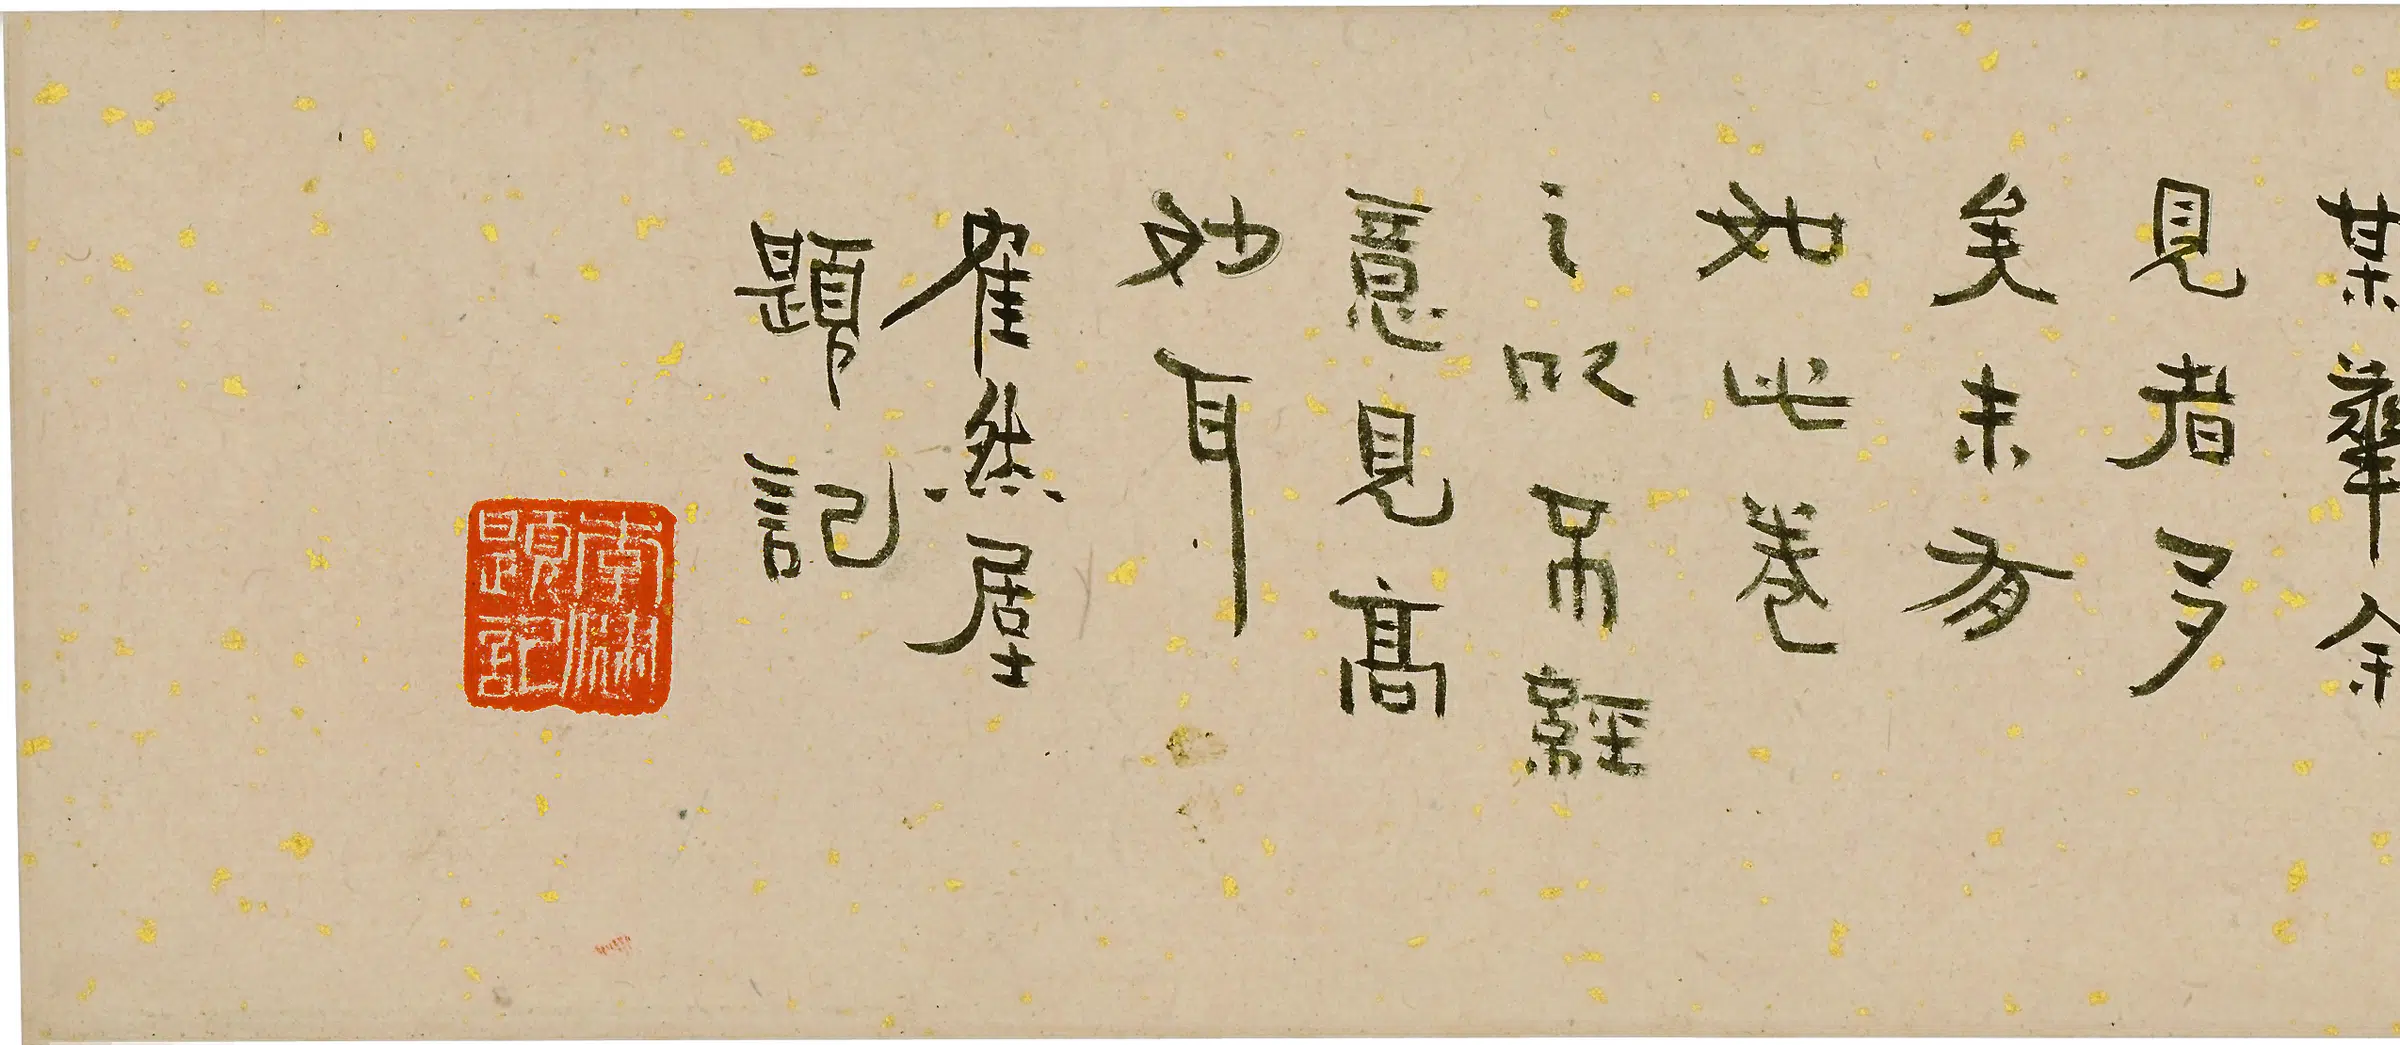 某華余
見者多
矣未有
如此卷
之以不經
意見高
妙耳
然居
題記
題記